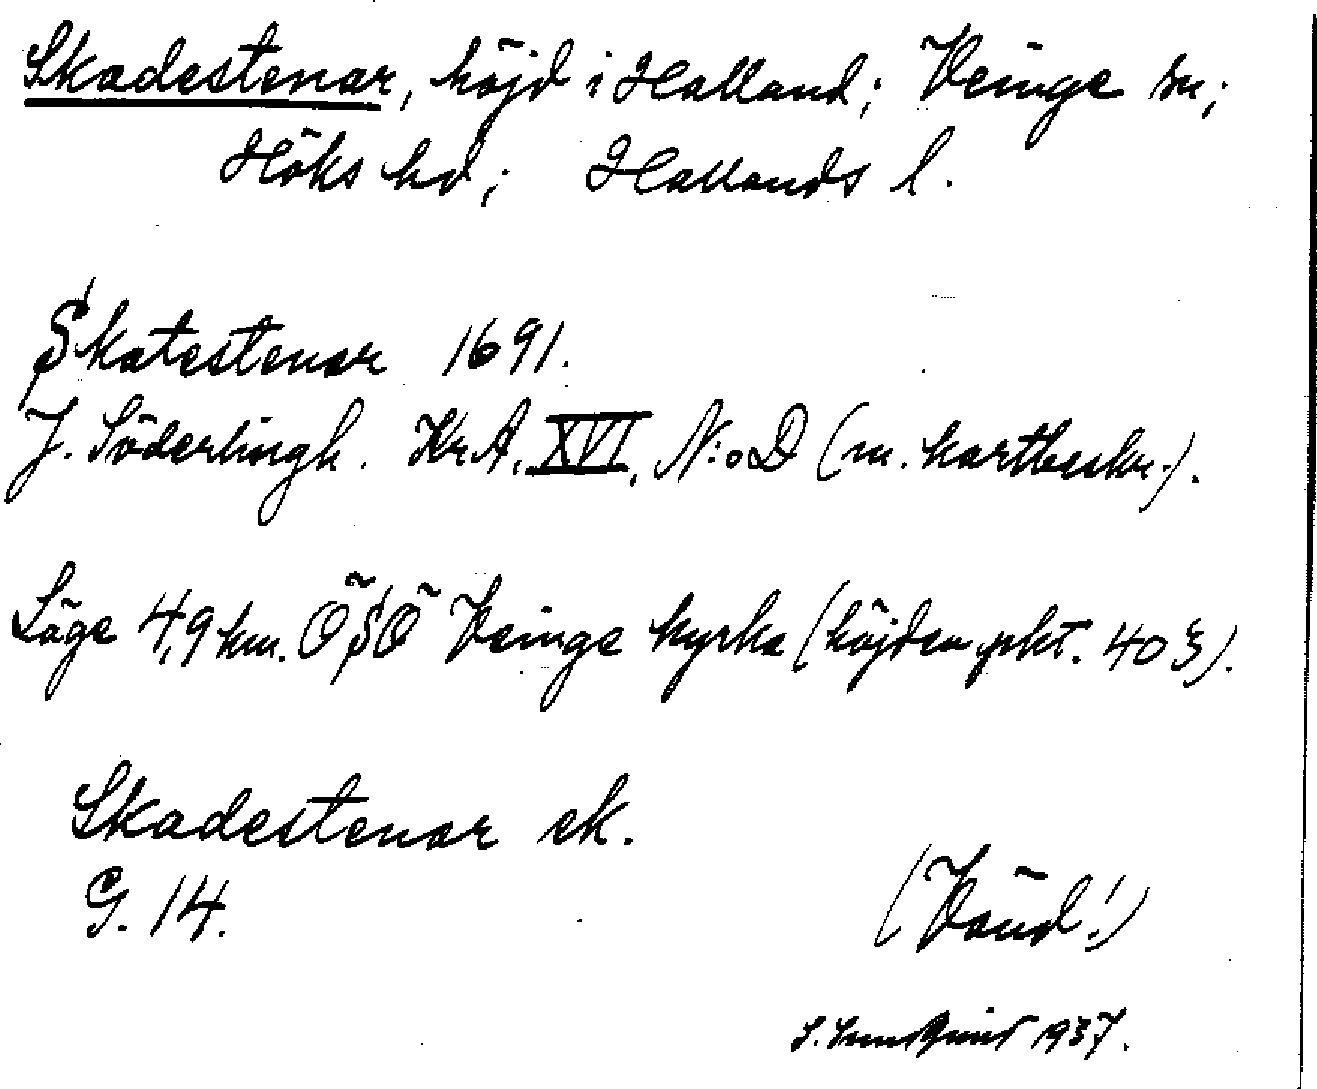 Skadestenar, höjd i Halland; Veinge sn;
Höks hd; Hallands l.
Skatestenar 1691.
J. Söderlingh. KrA. XVI, N:o D (m. kartbeskr.).
Läge 4,9 km. ÖSÖ Veinge kyrka (höjden pkt. 403).
Skadestenar ek.
G. 14.
(Vänd!)
S. Sundqvist 1937.